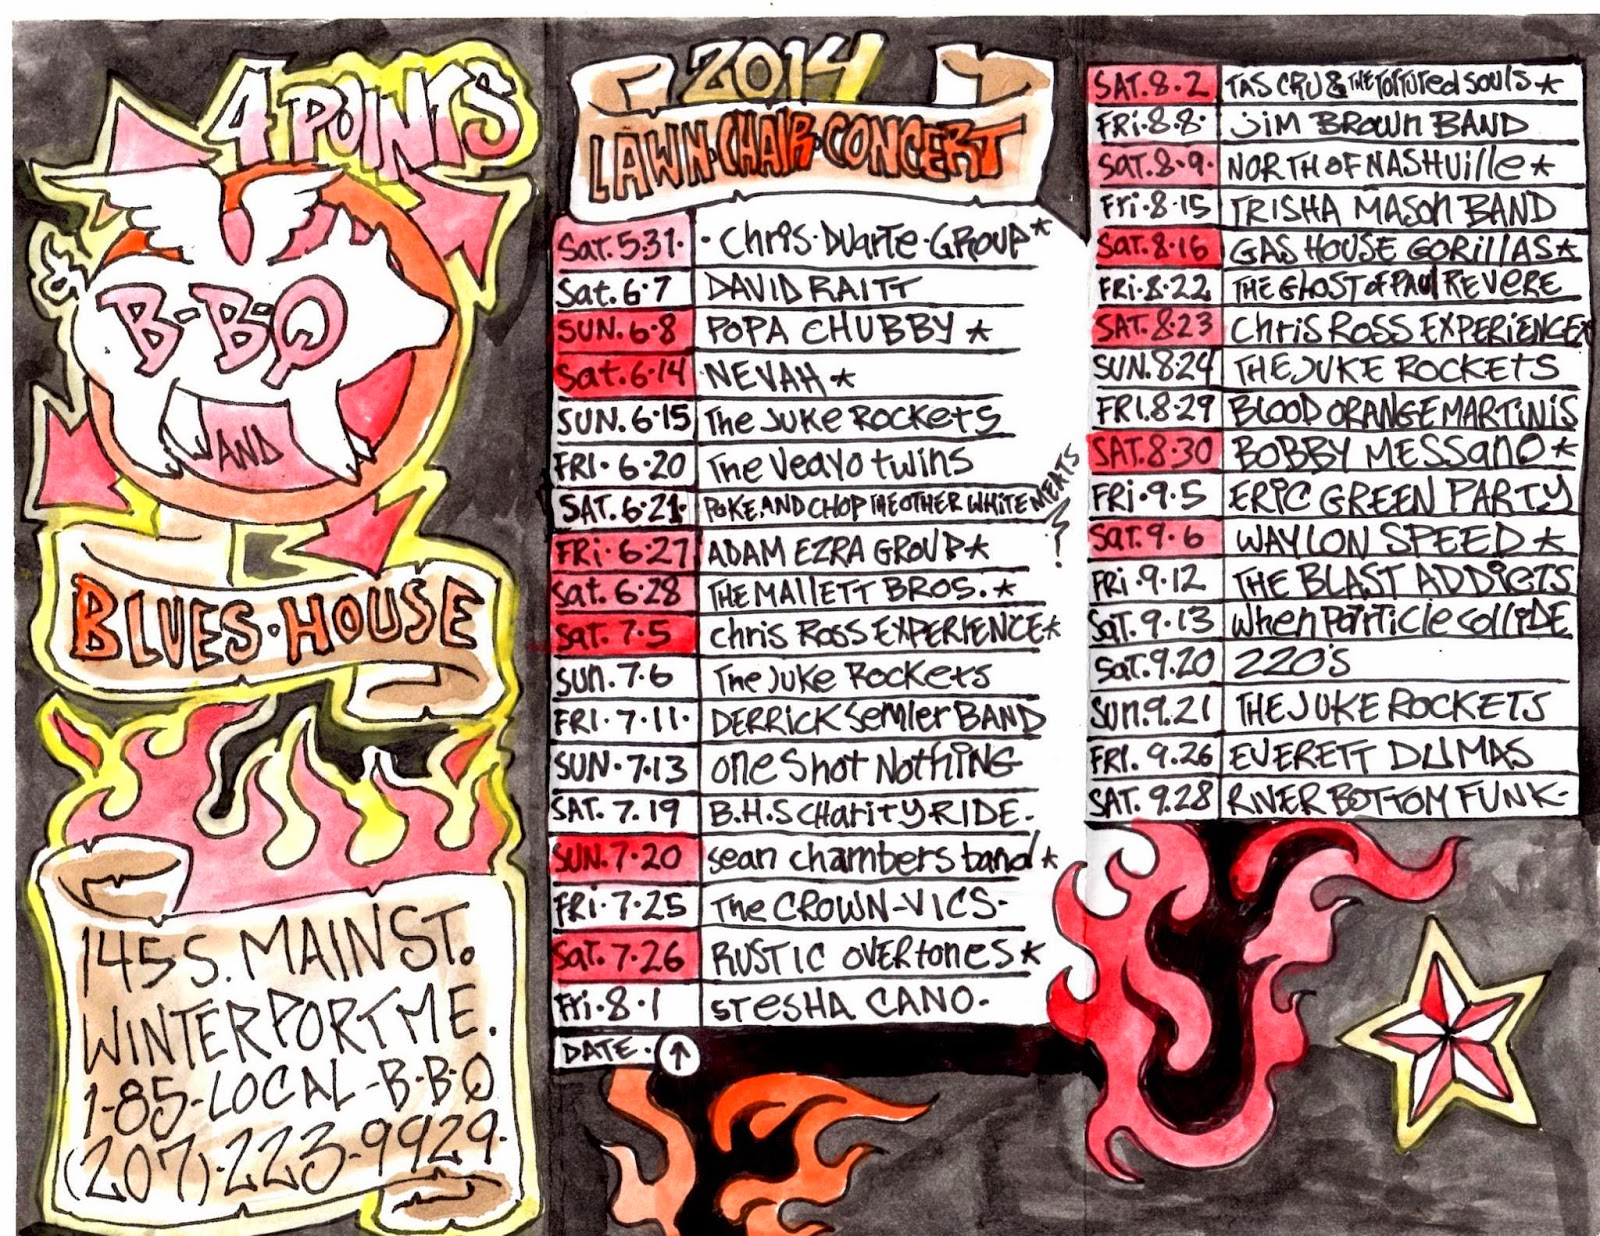 4 POINTS
B-B-Q
AND
BLUES·HOUSE
145 S. MAIN ST.
WINTERPORT ME.
1-85-LOCAL-B-B-Q
(207)-223-9929.
2014
LAWN·CHAIR·CONCERT
Sat. 5.31. · Chris·Duarte·Group*
Sat. 6.7 DAVID RAITT
SUN. 6.8 POPA CHUBBY *
Sat. 6.14 NEVAH *
SUN. 6.15 The Juke Rockets
FRI. 6.20 The Veayo twins
SAT. 6.21. POKE, AND CHOP THE OTHER WHITE MEATS?
FRI. 6.27 ADAM EZRA GROUP*
Sat. 6.28 THE MALLETT BROS. *
Sat. 7.5 Chris Ross EXPERIENCE*
SUN. 7.6 The Juke Rockets
FRI. 7.11. DERRICK Semler BAND
SUN. 7.13 one Shot Nothing
SAT. 7.19 B.H.S CHARITY RIDE.
SUN. 7.20 Sean chambers band *
FRI. 7.25 The CROWN-VICS-
Sat. 7.26 RUSTIC OVERTONES *
Fri. 8.1 STESHA CANO.
DATE. ↑
SAT. 8.2 TAS CRU & THE TORTURED SOULS *
FRI. 8.8. JIM BROWN BAND
SAT. 8.9. NORTH OF NASHVILLE *
Fri. 8.15 TRISHA MASON BAND
Sat. 8.16 GAS HOUSE GORILLAS *
FRI. 8.22 THE GHOST OF PAUL REVERE
SAT. 8.23 Chris ROSS EXPERIENCE*
SUN. 8.24 THE JUKE ROCKETS
FRI. 8.29 BLOOD ORANGE MARTINIS
SAT. 8.30 BOBBY MESSANO *
FRI. 9.5 ERIC GREEN PARTY
Sat. 9.6 WAYLON SPEED *
FRI. 9.12 THE BLAST ADDICTS
Sat. 9.13 When Particle Collide
Sat. 9.20 220's
SUN. 9.21 THE JUKE ROCKETS
FRI. 9.26 EVERETT DUMAS
SAT. 9.28 RIVER BOTTOM FUNK-